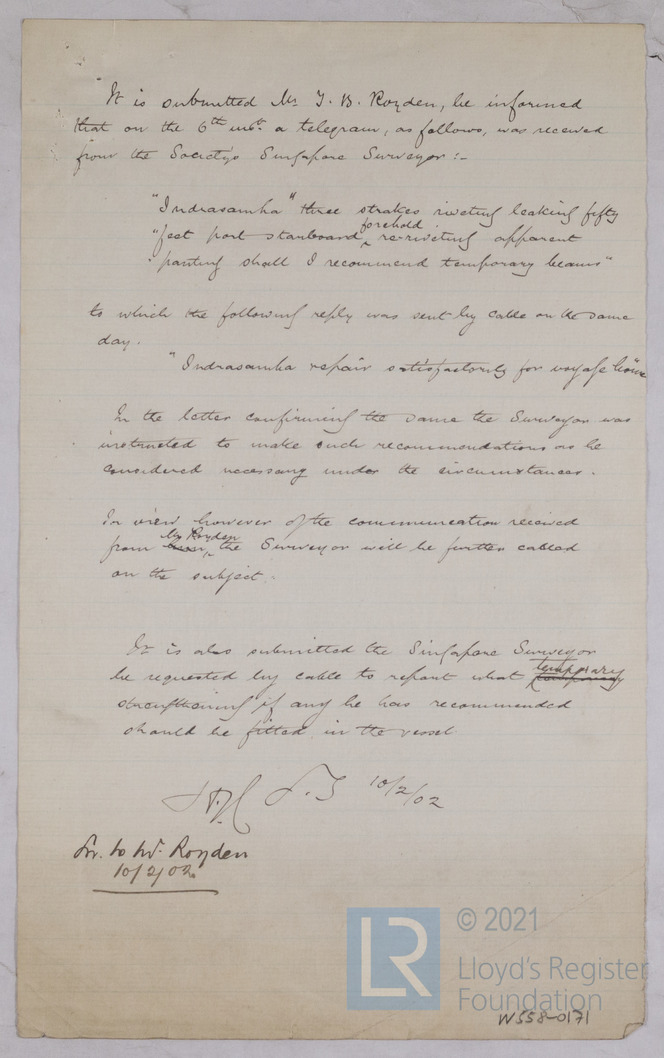 "It is submitted Mr T. B. Royden, be informed
that on the 6th inst. a telegram, as follows, was received
from the Society's Singapore Surveyor :-
"Indrasamha" three strakes riveting leaking fifty
"feet port starboard forehold re-riveting apparent
"panting shall I recommend temporary beams"
to which the following reply was sent by cable on the same
day.
"Indrasamha repair satisfactorily for voyage home
In the letter confirming the same the Surveyor was
instructed to make such recommendations as he
considered necessary under the circumstances.
In view however of the communication received
from Mr Royden, the Surveyor will be further cabled
on the subject.
It is also submitted the Singapore Surveyor
be requested by cable to report what temporary
strengthening if any he has recommended
should be fitted in the vessel
10/2/02
to Mr. Royden
10/2/02
LR
© 2021
Lloyd's Register
Foundation
W558-0171